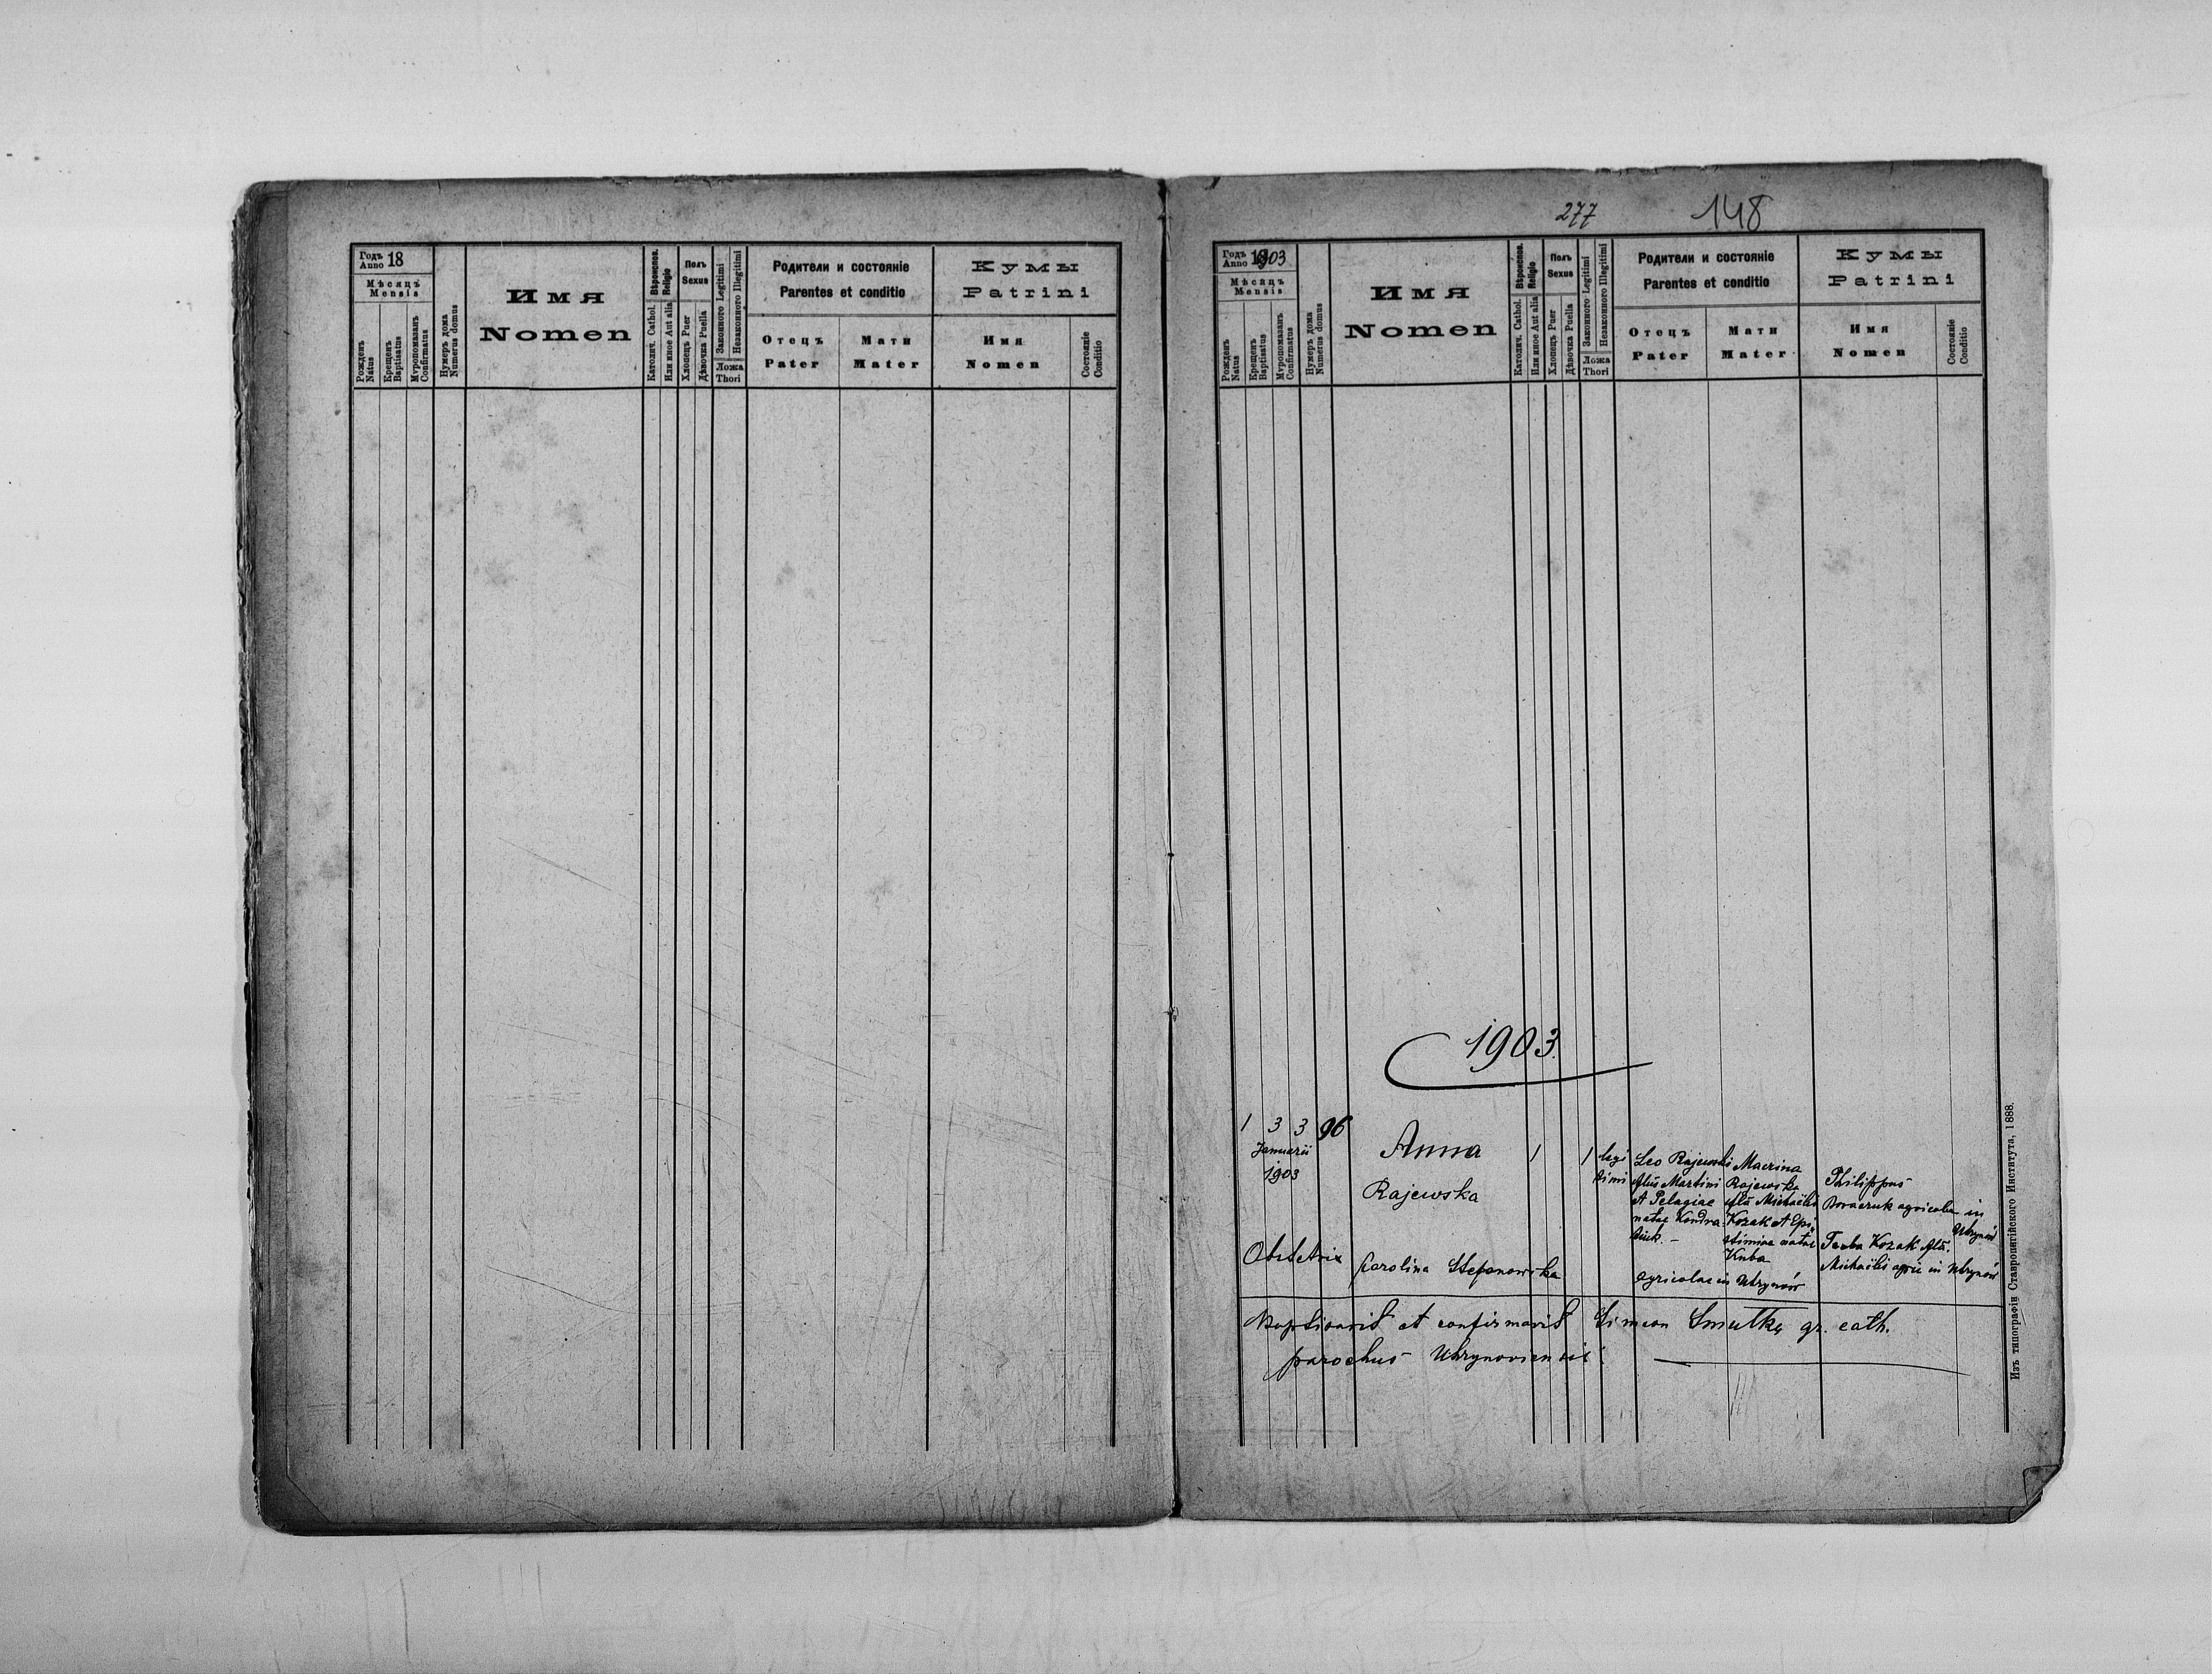 Годъ
Anno 18
Мѣсяцъ
Mensis
Рожденъ
Natus
Крещенъ
Baptisatus
Мѵропомазанъ
Confirmatus
Нумеръ дома
Numerus domus
Имя
Nomen
Вѣроиспов.
Religio
Католич. Cathol.
Или иное Aut alia
Полъ
Sexus
Хлопецъ Puer
Дѣвочка Puella
Законного Legitimi
Незаконного Illegitimi
Ложа
Thori
Родители и состояніе
Parentes et conditio
Отецъ
Pater
Мати
Mater
Кумы
Patrini
Имя
Nomen
Состояніе
Conditio
277
148
Годъ
Anno 1903
Мѣсяцъ
Mensis
Рожденъ
Natus
Крещенъ
Baptisatus
Мѵропомазанъ
Confirmatus
Нумеръ дома
Numerus domus
Имя
Nomen
Вѣроиспов.
Religio
Католич. Cathol.
Или иное Aut alia
Полъ
Sexus
Хлопецъ Puer
Дѣвочка Puella
Законного Legitimi
Незаконного Illegitimi
Ложа
Thori
Родители и состояніе
Parentes et conditio
Отецъ
Pater
Мати
Mater
Кумы
Patrini
Имя
Nomen
Состояніе
Conditio
1903.
1 3 3 96
Januarii
1903
Anna
Rajewska
1 1
legi
timi
Leo Rajewski
filius Martini
et Pelagiae
natae Kondra
tiuk.
Macrina
Rajewska
filia Michaëlis
Kozak et Epi
stimiae natae
Kuba
agricolae in Uhrynów
Philippus
agricola in
Uhrynów
Kozak filia
Michaëlis agric in Uhrynów
Obstetrix Carolina Stefanowska
Baptisavit et confirmavit Simeon Smulka gr. cath.
parochus Uhrynoviensis.
Изъ типографіи Ставропигійского Института, 1888.